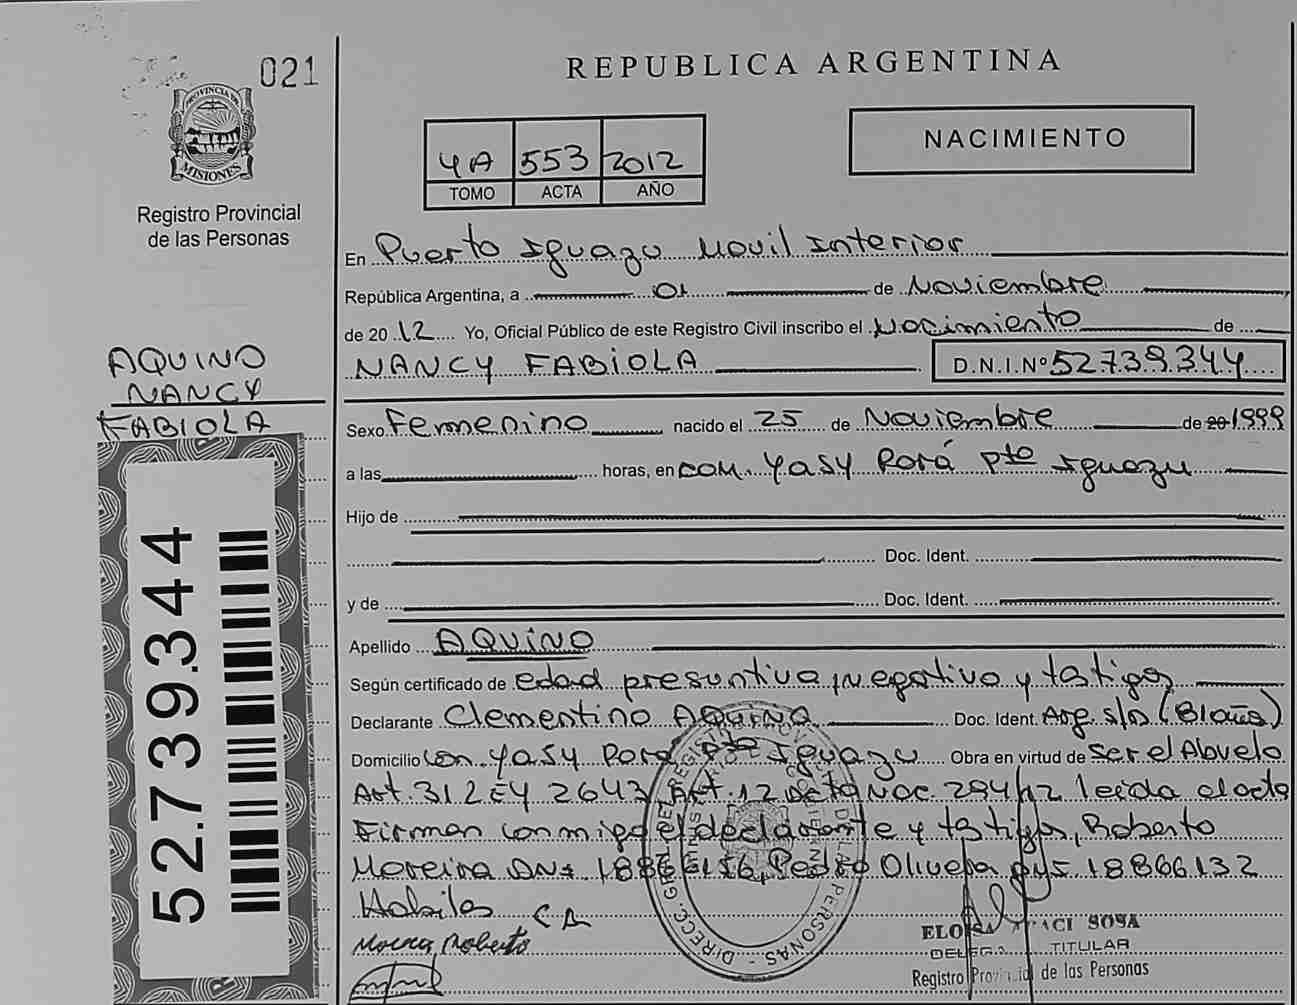 021
PROVINCIA DE
MISIONES
Registro Provincial
de las Personas
AQUINO
NANCY
FABIOLA
52.739.344
REPUBLICA ARGENTINA
4A 553 2012
TOMO ACTA AÑO
NACIMIENTO
En Puerto Iguazu Movil Interior
República Argentina, a 01 de Noviembre
de 2012 Yo, Oficial Público de este Registro Civil inscribo el Nacimiento de
NANCY FABIOLA D.N.I.Nº 52.739.344
Sexo Femenino nacido el 25 de Noviembre de 20 1999
a las horas, en com. Yasy Porá Pto Iguazu
Hijo de
Doc. Ident.
y de Doc. Ident.
Apellido AQUINO
Según certificado de edad presuntiva, negativo y testigos
Declarante Clementino AQUINO Doc. Ident. Arg. s/n
Domicilio com Yasy Pora Pto Iguazu Obra en virtud de ser el Abuelo
Art. 312 EY 2643 Art. 12 Dcto Nac. 294/12 leida el acta
Firman conmigo el declarante y testigos, Roberto
Moreira DNI Pedro Olivera 18866132
Habiles
Roberto
ELOISA SOSA
DELEGADA TITULAR
Registro Provincial de las Personas